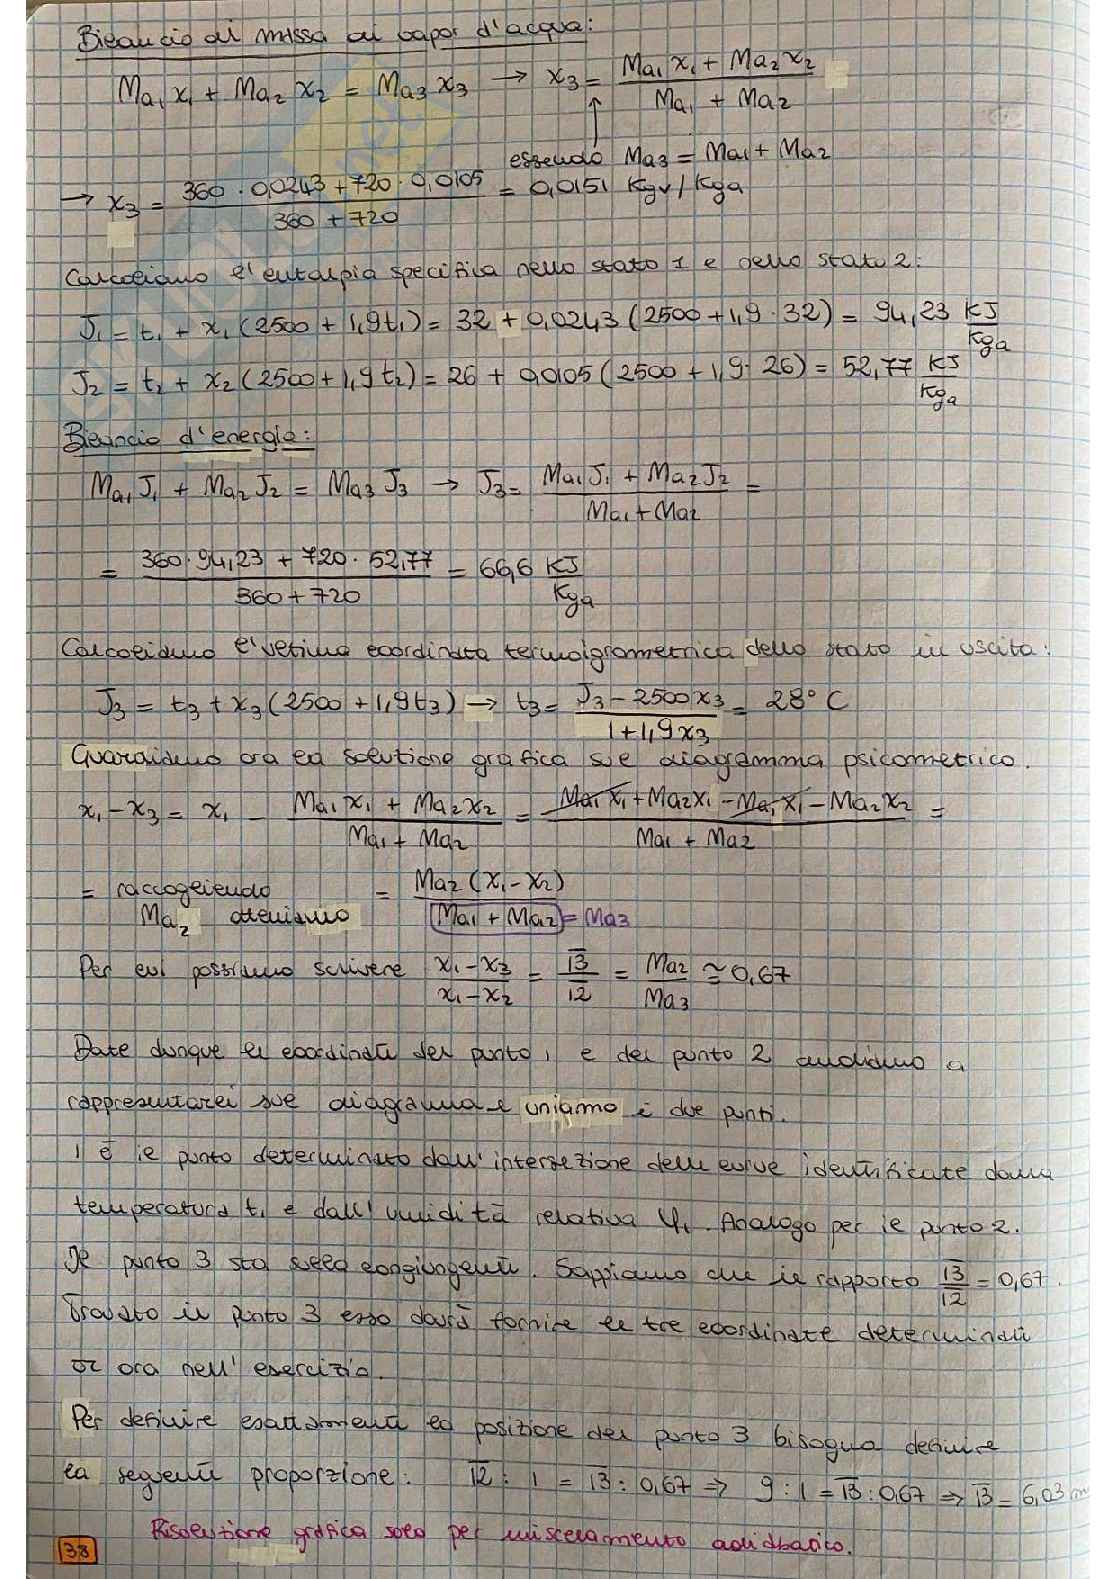 Bilancio di massa di vapor d'acqua:
Ma₁ x₁ + Ma₂ x₂ = Ma₃ x₃ → x₃ = (Ma₁ x₁ + Ma₂ x₂) / (Ma₁ + Ma₂)
↑ essendo Ma₃ = Ma₁ + Ma₂
→ x₃ = (360 · 0,0243 + 720 · 0,0105) / (360 + 720) = 0,0151 Kgv/Kga
Calcoliamo l'entalpia specifica nello stato 1 e nello stato 2:
J₁ = t₁ + x₁ (2500 + 1,9t₁) = 32 + 0,0243 (2500 + 1,9 · 32) = 94,23 KJ/Kga
J₂ = t₂ + x₂ (2500 + 1,9 t₂) = 26 + 0,0105 (2500 + 1,9 · 26) = 52,77 KJ/Kga
Bilancio d'energia:
Ma₁ J₁ + Ma₂ J₂ = Ma₃ J₃ → J₃ = (Ma₁ J₁ + Ma₂ J₂) / (Ma₁ + Ma₂) =
= (360 · 94,23 + 720 · 52,77) / (360 + 720) = 66,6 KJ/Kga
Calcoliamo l'ultima coordinata termoigrometrica dello stato in uscita:
J₃ = t₃ + x₃ (2500 + 1,9t₃) → t₃ = (J₃ - 2500 x₃) / (1 + 1,9 x₃) = 28° C
Guardiamo ora la soluzione grafica sul diagramma psicometrico.
x₁ - x₃ = x₁ - (Ma₁ x₁ + Ma₂ x₂) / (Ma₁ + Ma₂) = (Ma₁ x₁ + Ma₂ x₁ - Ma₁ x₁ - Ma₂ x₂) / (Ma₁ + Ma₂) =
= raccogliendo Ma₂ otteniamo = Ma₂ (x₁ - x₂) / (Ma₁ + Ma₂) = Ma₃
Per cui possiamo scrivere (x₁ - x₃) / (x₁ - x₂) = 1̅3̅ / 1̅2̅ = Ma₂ / Ma₃ ≅ 0,67
Date dunque le coordinate del punto 1 e del punto 2 andiamo a
rappresentarli sul diagramma e uniamo i due punti.
1 è il punto determinato dall'intersezione delle curve identificate dalla
temperatura t₁ e dall'umidità relativa φ₁. Analogo per il punto 2.
Il punto 3 sta sulla congiungente. Sappiamo che il rapporto 1̅3̅ / 1̅2̅ = 0,67.
Trovato il punto 3 esso dovrà fornire le tre coordinate determinate
or ora nell'esercizio.
Per definire esattamente la posizione del punto 3 bisogna definire
la seguente proporzione: 1̅2̅ : 1 = 1̅3̅ : 0,67 ⇒ 9 : 1 = 1̅3̅ : 0,67 ⇒ 1̅3̅ = 6,03
Risoluzione grafica solo per miscelamento adiabatico.
38